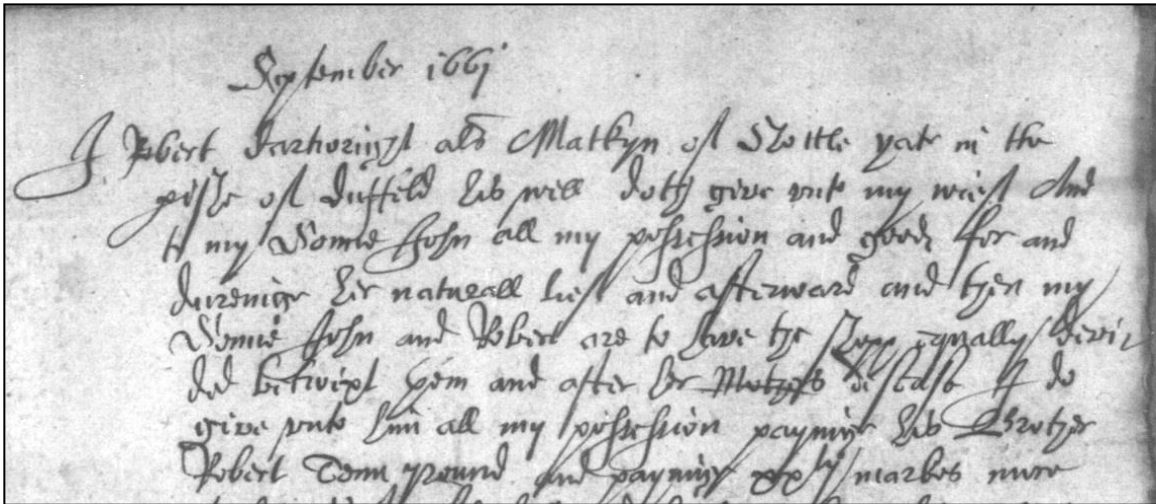 September 1661
I Robert als Matkyn of Shottle yate in the
pishe of Duffeld his will doth give vnto my wief And
to my Sonne John all my possession and goods for and
dureinge her naturall lief and afterward and then my
Sonne John and Robert are to have the equally devi
ded betwixt them and after her Mothers discease I do
give vnto him all my possession payinge his Brother
Robert Tenn pound and payinge xxty markes more